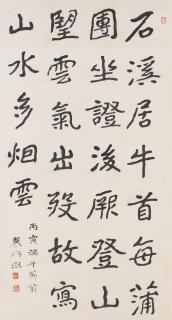 石溪居牛首每蒲
團坐證後厥登山
望雲氣出歿故寫
山水多烟雲
丙寅端午節